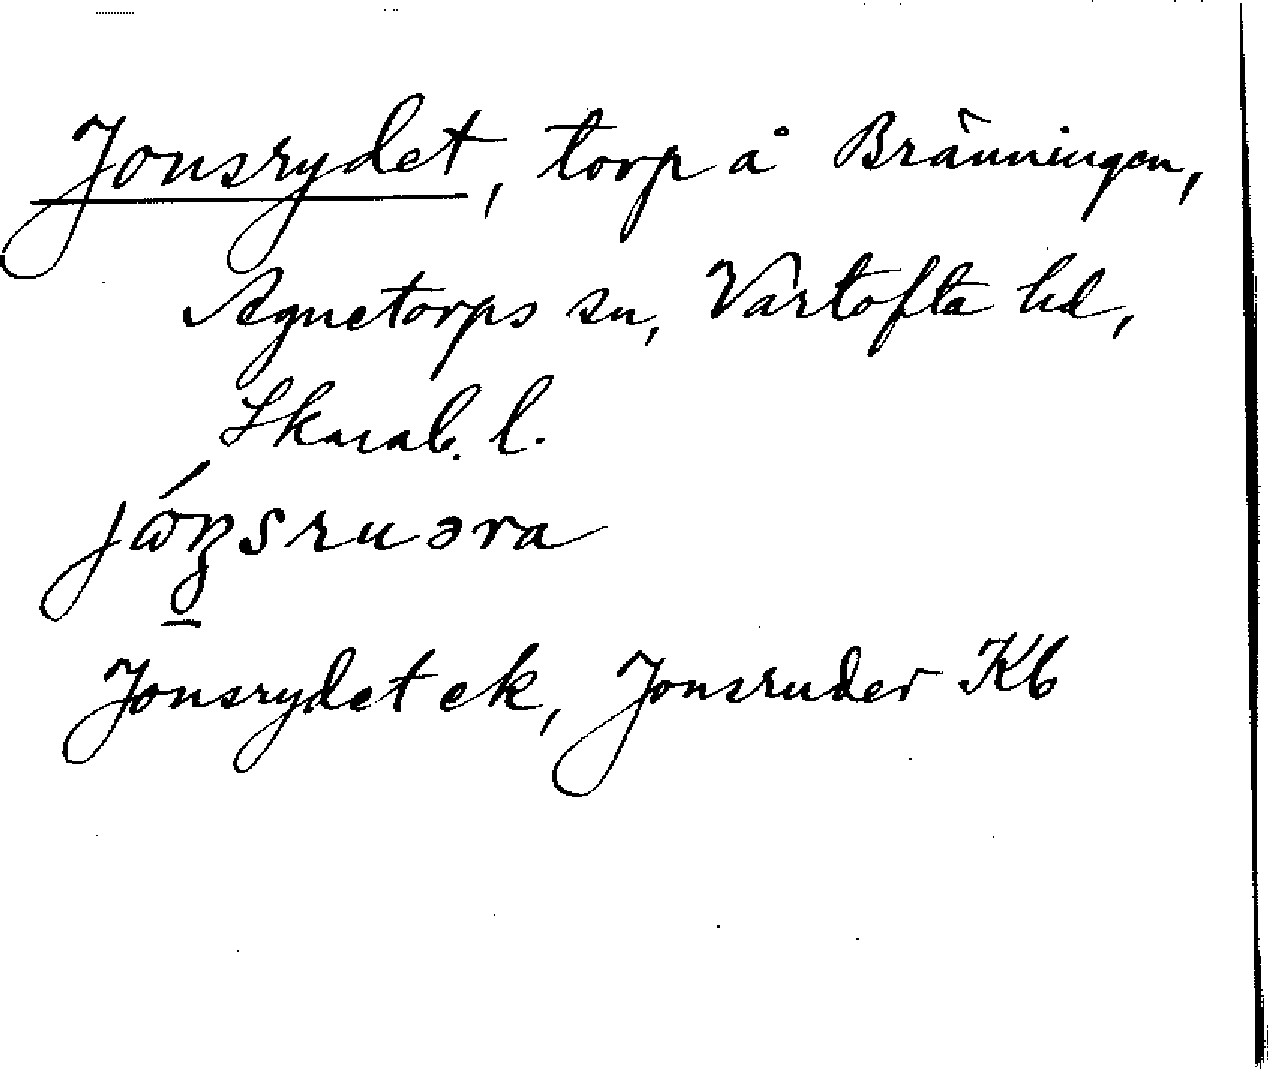 Jonsrydet, torp å Bränningen,
Agnetorps sn, Vartofta hd,
Skarab. l.
Jonsrydet ek, Jonsruder Kb